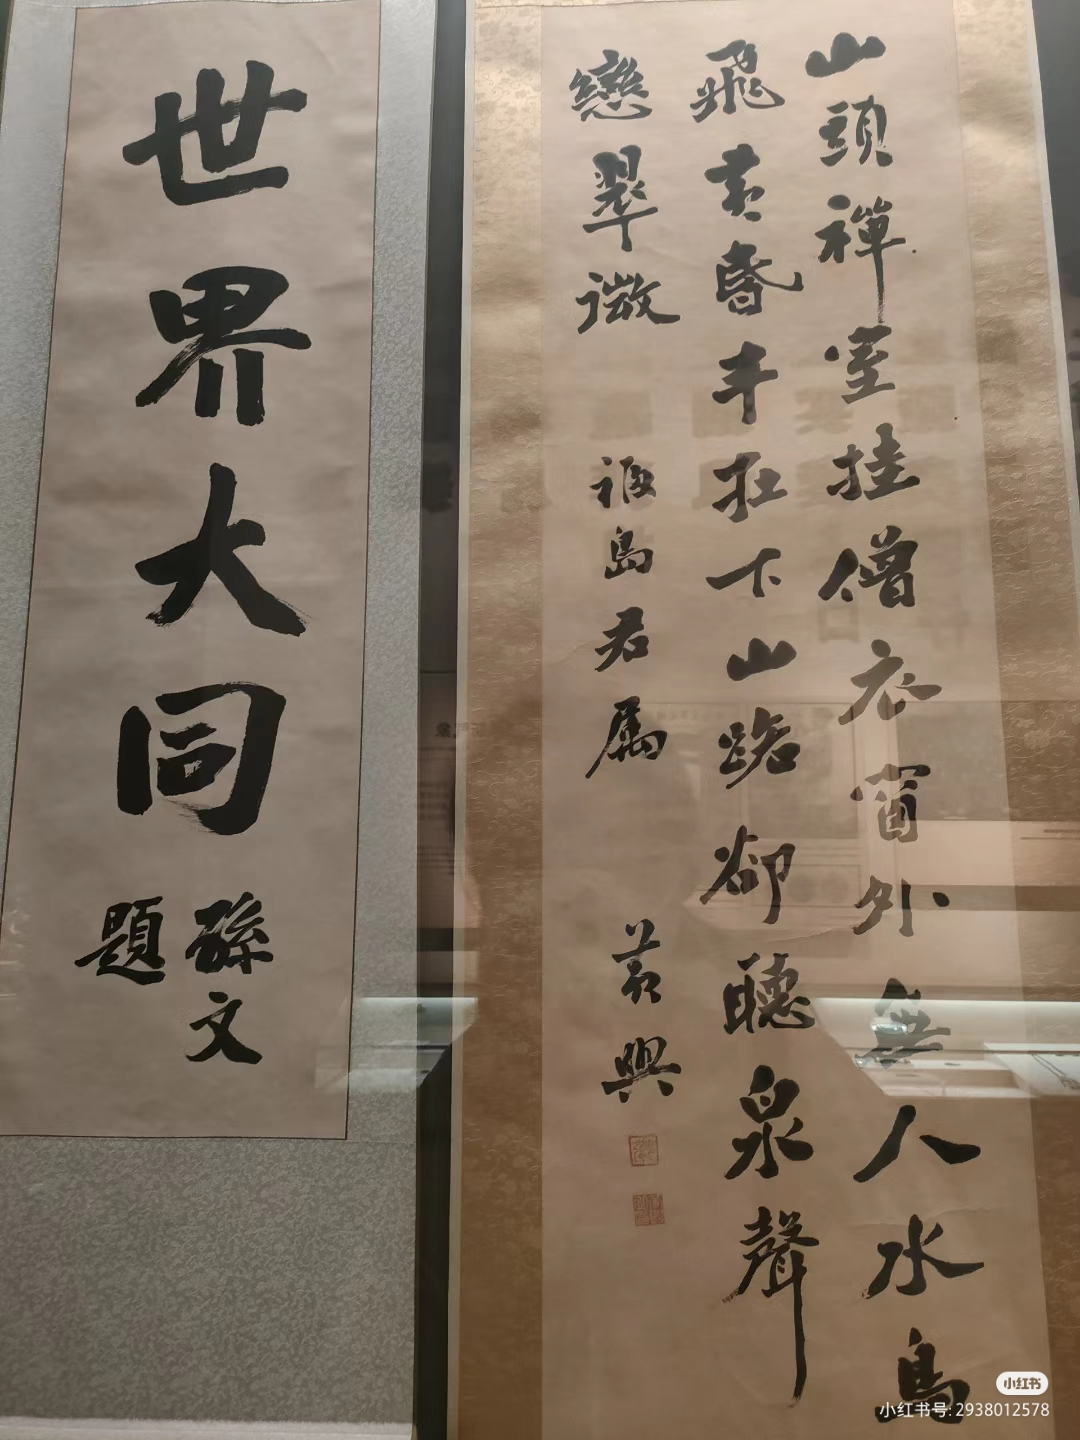 山頭禪室挂僧衣窗外無人水鳥
飛黃昏半在下山路卻聽泉聲
戀翠微
福島君屬
黃興
世界大同
孫文
題
小红书
小红书号: 2938012578